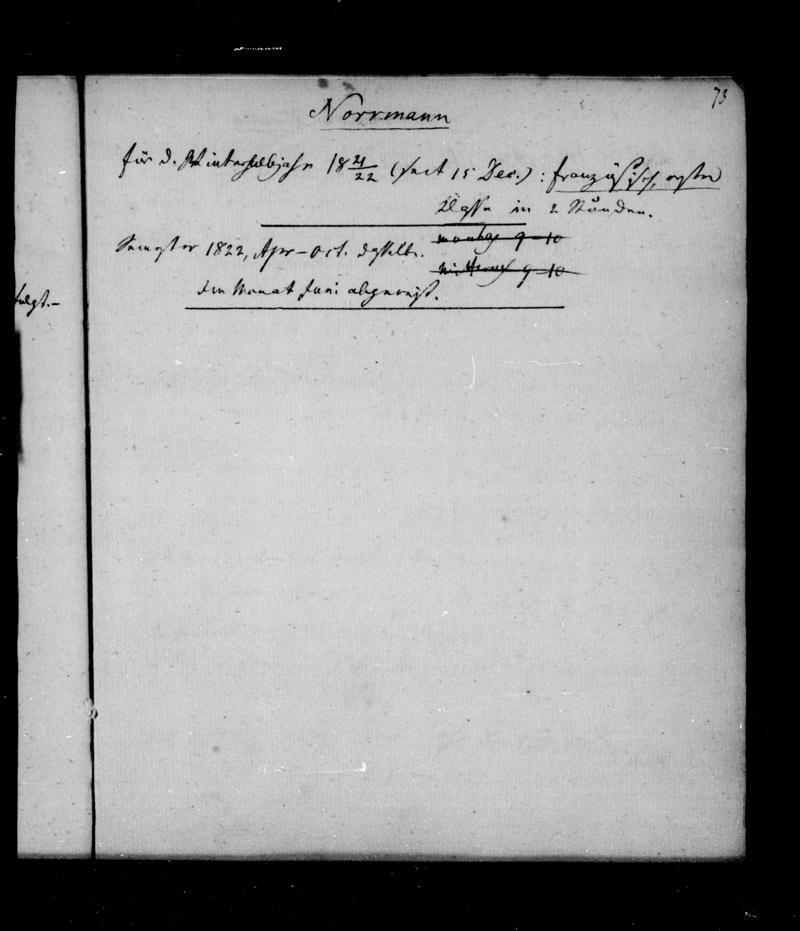 73
Norrmann
für d. Winterhalbjahr 18 21/22 (seit 15 Dec.) : französisch, erster
Classe in 2 Stunden.
montag 9-10
Semester 1822, Apr – Oct. dasselbe.
mittwoch 9-10
den Monat Juni abgereist.
folgt. –